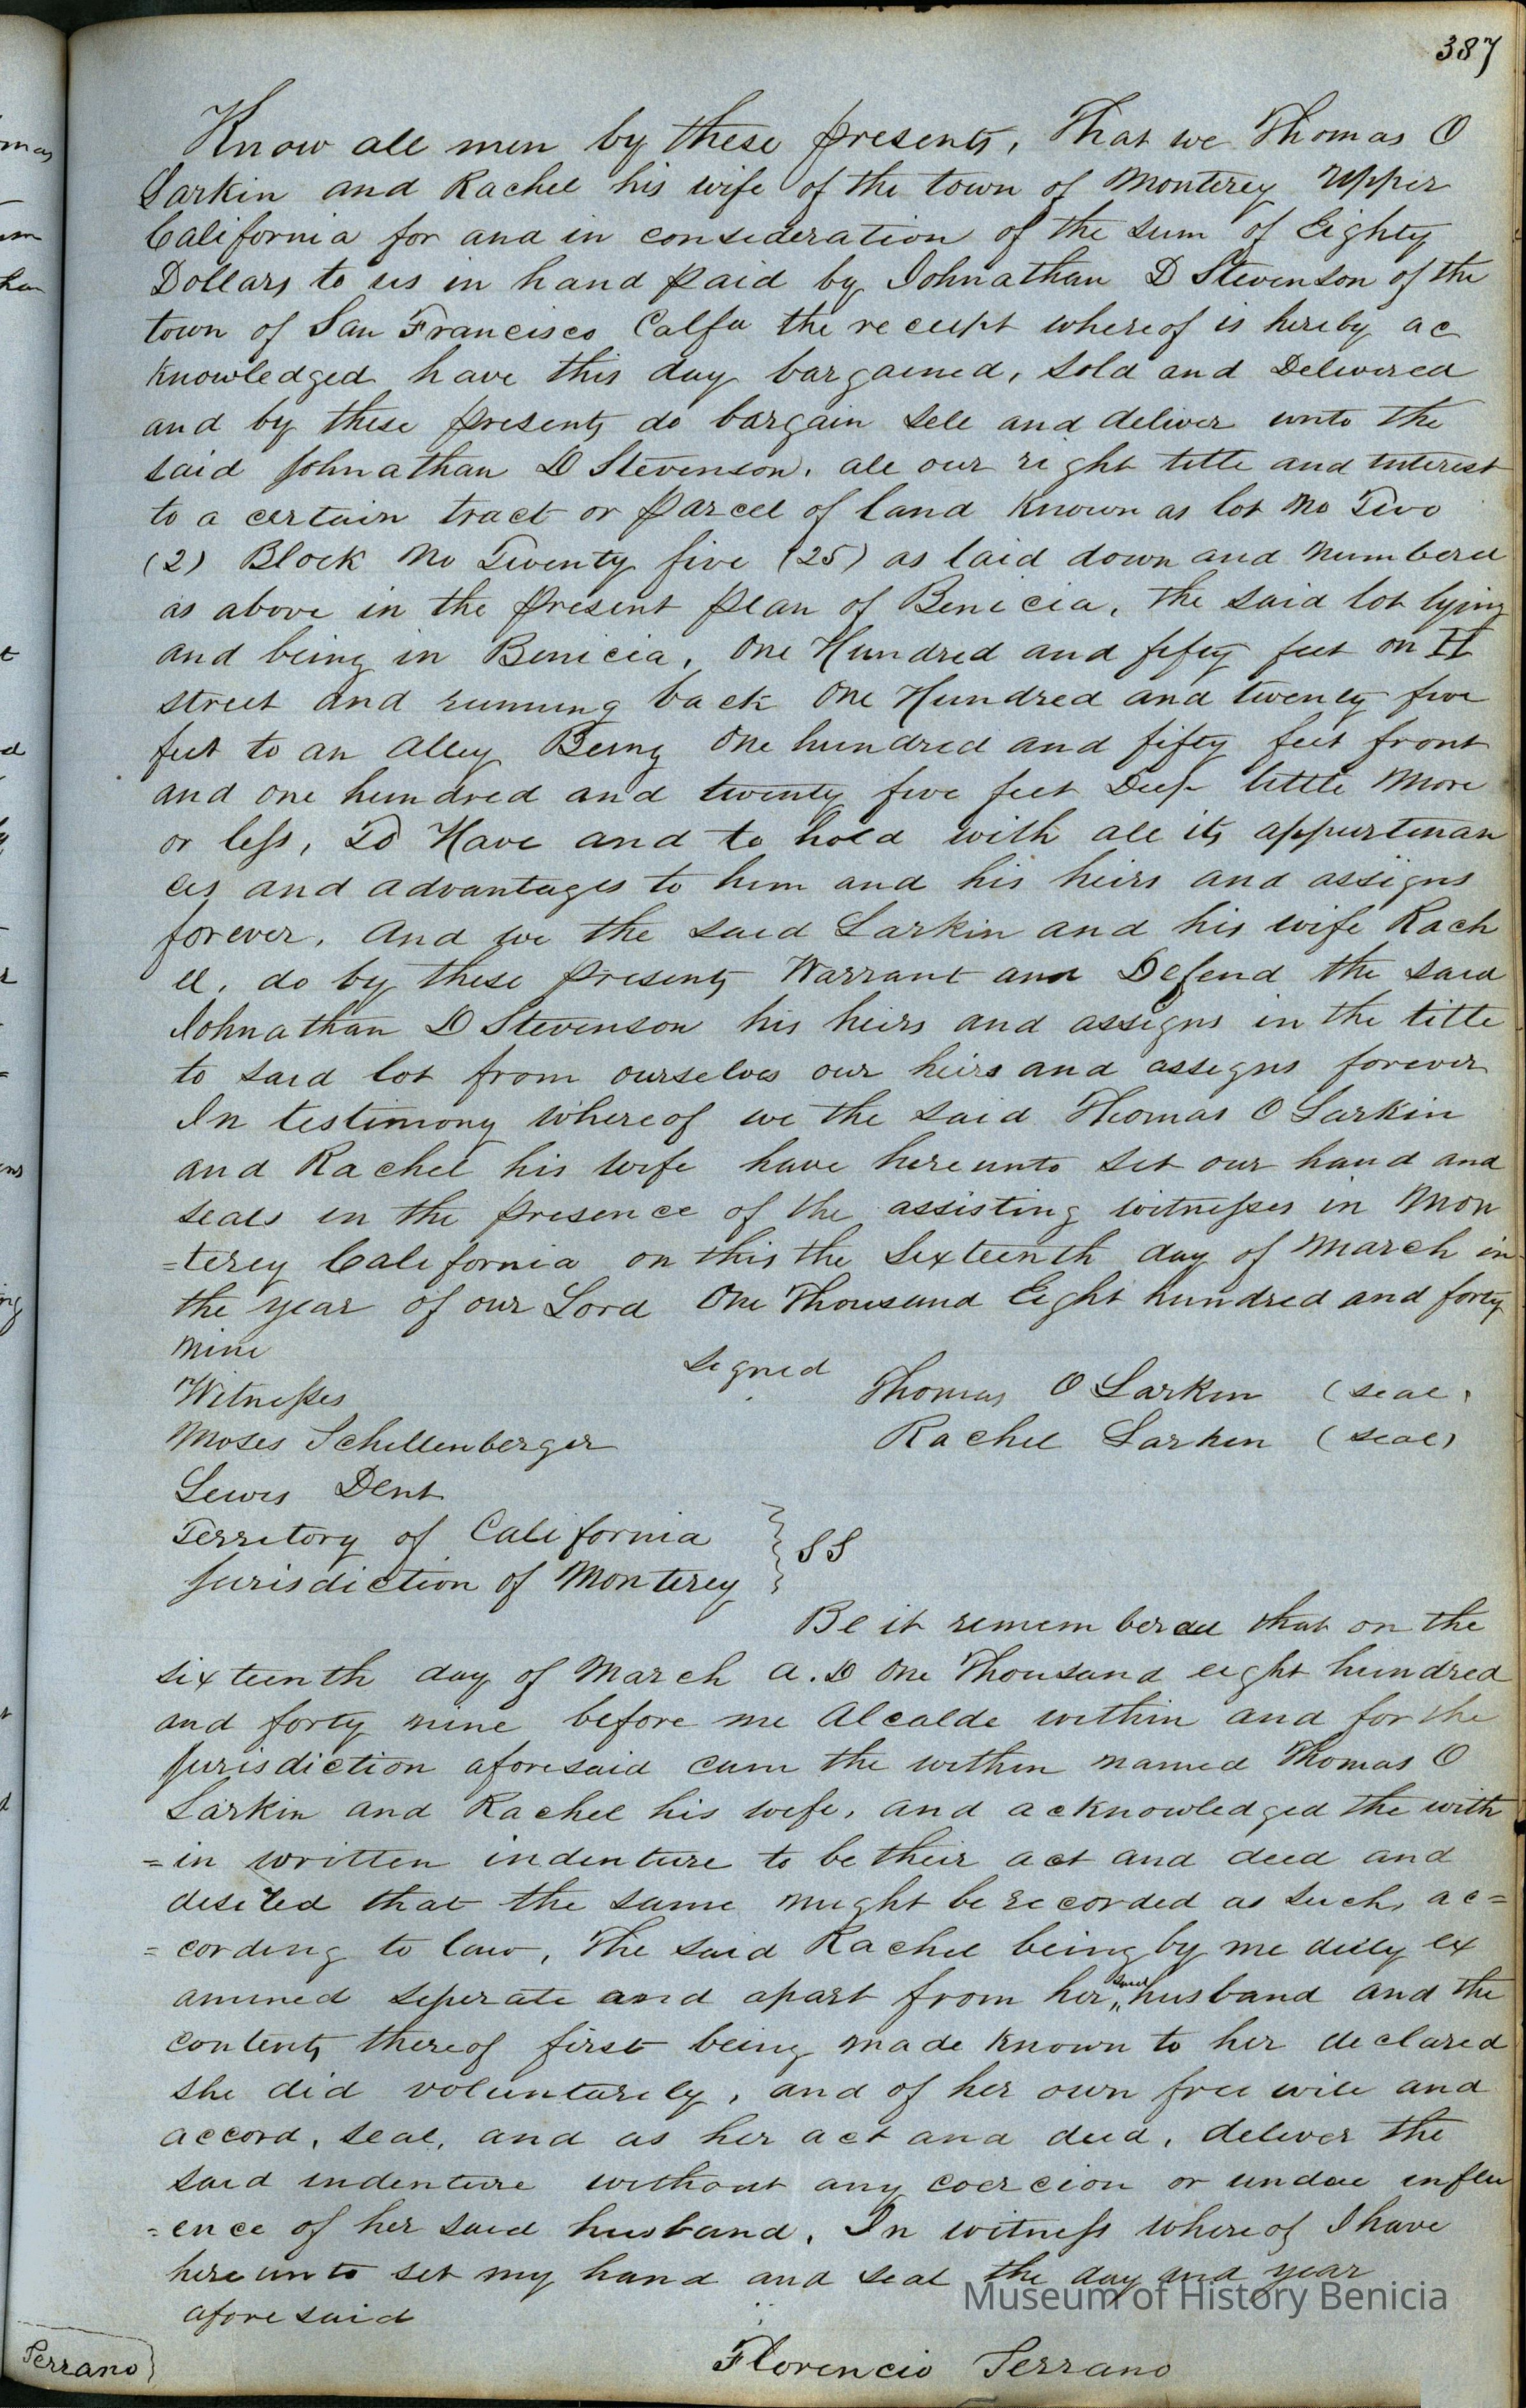 387
Know all men by these presents, That we Thomas O
Larkin and Rachel his wife of the town of Monterey Upper
California for and in consideration of the sum of Eighty
Dollars to us in hand paid by Johnathan D Stevenson of the
town of San Francisco Calfa the receipt whereof is hereby ac
knowledged have this day bargained, sold and Delivered
and by these presents do bargain sell and deliver unto the
said Johnathan D Stevenson, all our right title and interest
to a certain tract or parcel of land known as lot No Two
(2) Block No Twenty five (25) as laid down and numbered
as above in the present plan of Benicia, the said lot lying
and being in Benicia, One Hundred and fifty feet on H
street and running back One Hundred and twenty five
feet to an Alley Being One hundred and fifty feet front
and one hundred and twenty five feet Deep little More
or less, To Have and to hold with all its appurtenan
ces and advantages to him and his heirs and assigns
forever. And we the said Larkin and his wife Rach
el, do by these presents Warrant and Defend the said
Johnathan D Stevenson his heirs and assigns in the title
to said lot from ourselves our heirs and assigns forever
In testimony whereof we the said Thomas O Larkin
and Rachel his wife have hereunto set our hand and
seals in the presence of the assisting witnesses in Mon
=terey California on this the Sixteenth day of March in
the year of our Lord One Thousand Eight hundred and forty
nine
signed Thomas O Larkin (seal)
Witnesses
Rachel Larkin (seal)
Moses Schellenberger
Lewis Dent
Territory of California } SS
Jurisdiction of Monterey
Be it remembered that on the
sixteenth day of March A.D One Thousand eight hundred
and forty nine before me Alcalde within and for the
Jurisdiction aforesaid came the within named Thomas O
Larkin and Rachel his wife, and acknowledged the with
=in written indenture to be their act and deed and
desired that the same might be recorded as such, ac=
=cording to law, The said Rachel being by me duly ex
amined seperate and apart from her said husband and the
contents thereof first being made known to her declared
she did volunturily, and of her own free will and
accord, seal, and as her act and deed, deliver the
said indenture without any coercion or undue influ
=ence of her said husband. In witness whereof I have
hereunto set my hand and seal the day and year
aforesaid
Museum of History Benicia
Florencio Serrano
Serrano